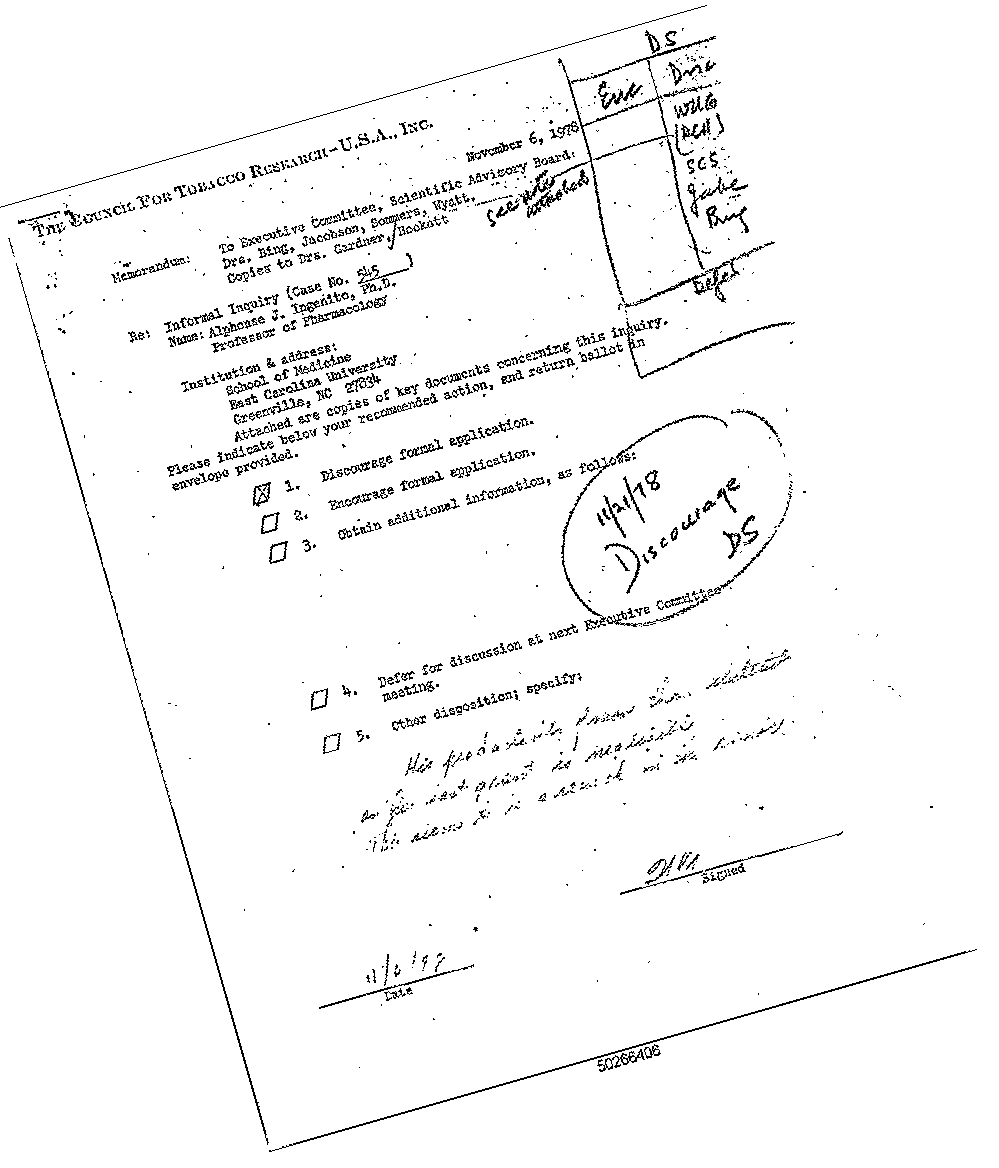 DS
Enc Disc
THE COUNCIL FOR TOBACCO RESEARCH-U.S.A., INC.
WUG
(RCH)
SCS
Jacobs
Bing
Defer
November 6, 1978
Memorandum: To Executive Committee, Scientific Advisory Board:
Drs. Bing, Jacobson, Sommers, Wyatt.
Copies to Drs. Gardner, Hockett
see note
attached
Re: Informal Inquiry (Case No. 545)
Name: Alphonse J. Ingenito, Ph.D.
Professor of Pharmacology
Institution & address:
School of Medicine
East Carolina University
Greenville, NC 27834
Attached are copies of key documents concerning this inquiry.
Please indicate below your recommended action, and return ballot in
envelope provided.
1. Discourage formal application.
2. Encourage formal application.
3. Obtain additional information, as follows:
11/21/78
Discourage
DS
4. Defer for discussion at next Executive Committee
meeting.
5. Other disposition; specify:
His productivity from
last grant is negligible
This seems to in the
Signed
Date
50266406